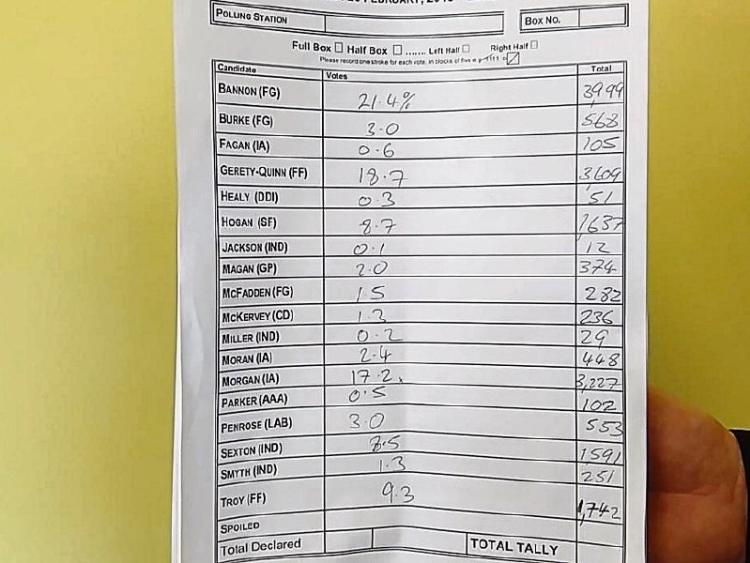 FEBRUARY,
POLLING STATION BOX NO.
Full Box Half Box ....... Left Half Right Half
Please record one stroke for each vote, in blocks of five e.g. 1111 or
Candidate Votes Total
BANNON (FG) 21.4% 3,999
BURKE (FG) 3.0 568
FAGAN (IA) 0.6 105
GERETY-QUINN (FF) 18.7 3,609
HEALY (DDI) 0.3 51
HOGAN (SF) 8.7 1,637
JACKSON (IND) 0.1 12
MAGAN (GP) 2.0 374
MCFADDEN (FG) 1.5 282
MCKERVEY (CD) 1.3 236
MILLER (IND) 0.2 29
MORAN (IA) 2.4 448
MORGAN (IA) 17.2. 3,227
PARKER (AAA) 0.5 102
PENROSE (LAB) 3.0 553
SEXTON (IND) 8.5 1591
SMYTH (IND) 1.3 251
TROY (FF) 9.3 1,742
SPOILED
Total Declared TOTAL TALLY